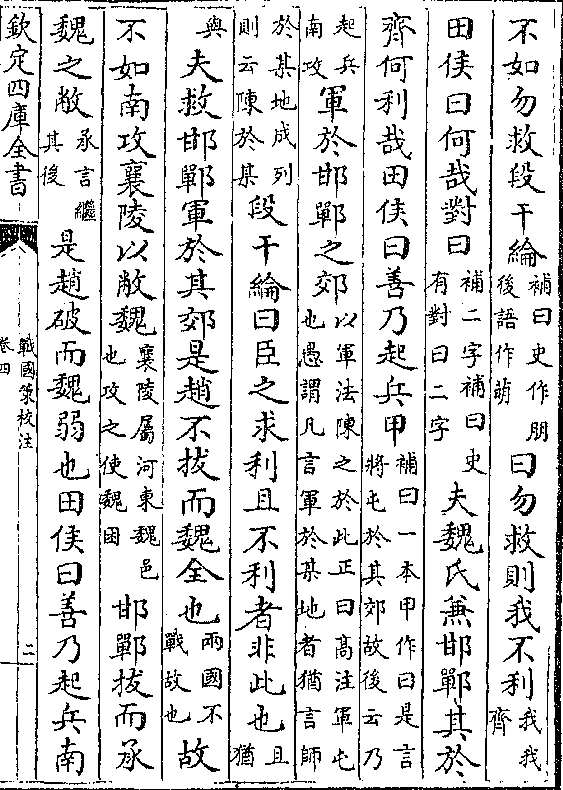 不如勿救段干綸補曰史作朋後語作萌曰勿救則我不利我我齊
田侯曰何哉對曰補二字補曰史有對曰二字夫魏氏兼邯鄲其於
齊何利哉田侯曰善乃起兵甲補曰一本甲作曰是言將屯於其郊故後云乃
起兵南攻軍於邯鄲之郊以軍法陳之於此正曰高注軍屯也愚謂凡言軍於某地者猶言師
於某地成列則云陳於某段干綸曰臣之求利且不利者非此也且猶
與夫救邯鄲軍於其郊是趙不拔而魏全也兩國不戰故也故
不如南攻襄陵以敝魏襄陵屬河東魏邑也攻之使魏困邯鄲拔而承
魏之敝承言繼其後是趙破而魏弱也田侯曰善乃起兵南
欽定四庫全書
戰國策校注
卷四
二